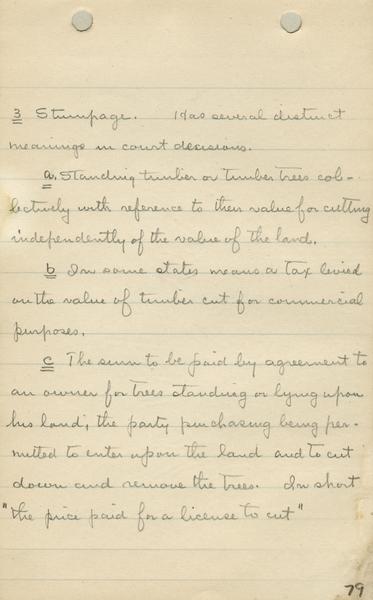 3 Stumpage. Has several distinct
meanings in court decisions.
a. Standing timber or timber trees col-
lectively with reference to their value for cutting
independently of the value of the land.
b In some states means a tax levied
on the value of timber cut for commercial
purposes.
c The sum to be paid by agreement to
an owner for trees standing or lying upon
his land; the party purchasing being per-
mitted to enter upon the land and to cut
down and remove the trees. In short
"the price paid for a license to cut"
79